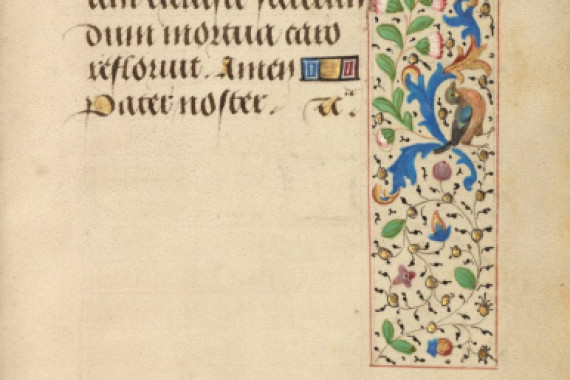 dum mortua caro
refloruit. Amen
Pater noster. ꝛc.